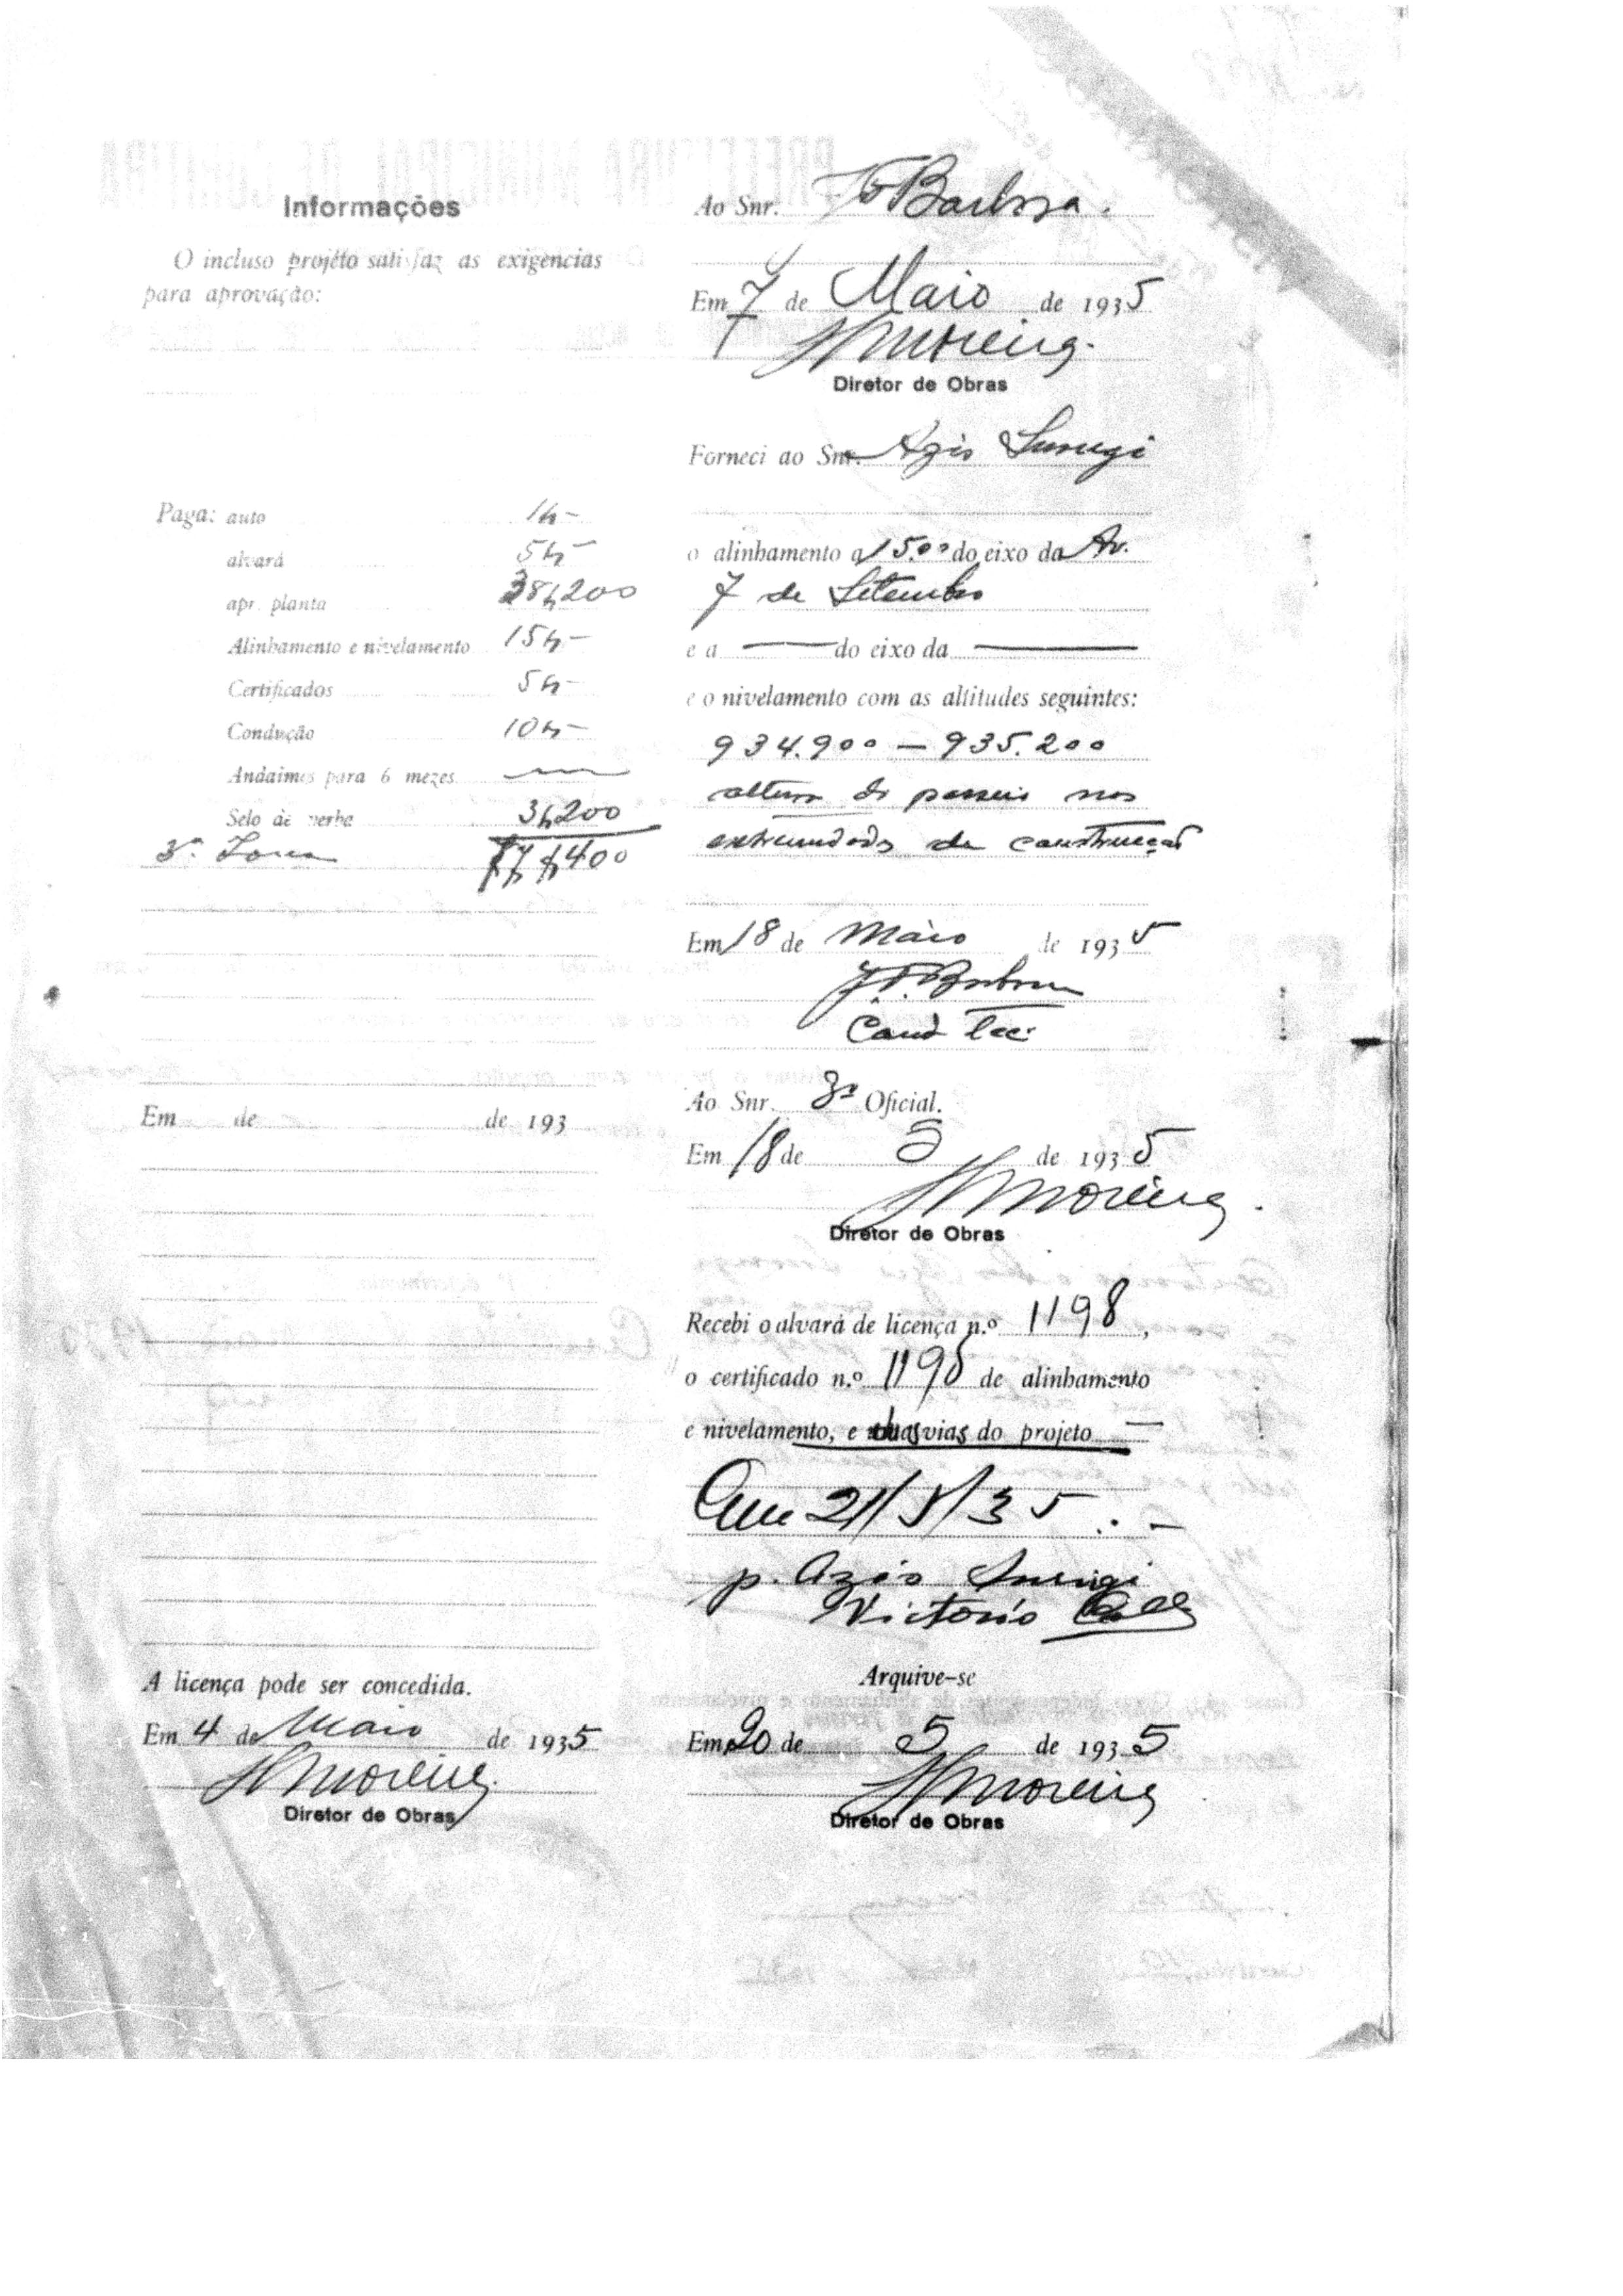 Informações
O incluso projéto satisfaz as exigencias
para aprovação:
Paga: auto 1$-
alvará 5$-
apr. planta 38$200
Alinhamento e nivelamento 15$-
Certificados 5$-
Condução 10$-
Andaimes para 6 mezes
Selo de verba 3$200
3ª Zona 77$400
Em de de 193
A licença pode ser concedida.
Em 4 de Maio de 1935
Moreira
Diretor de Obras
Ao Snr. Barbosa.
Em 7 de Maio de 1935
Moreira.
Diretor de Obras
Forneci ao Snr. Azis Surugi
o alinhamento a 15.00 do eixo da Av.
7 de Setembro
e a — do eixo da —
e o nivelamento com as altitudes seguintes:
934.900 — 935.200
altura do passeio nos
extremidades da construcção
Em 18 de Maio de 1935
Barbosa
Cond Tec.
Ao Snr. 3º Oficial.
Em 18 de 5 de 1935
Moreira.
Diretor de Obras
Recebi o alvará de licença n.º 1198,
o certificado n.º 1198 de alinhamento
e nivelamento, e duas vias do projeto —
Em 21/5/35.-
p. Azis Surugi
Victorio
Arquive-se
Em 20 de 5 de 1935
Moreira
Diretor de Obras